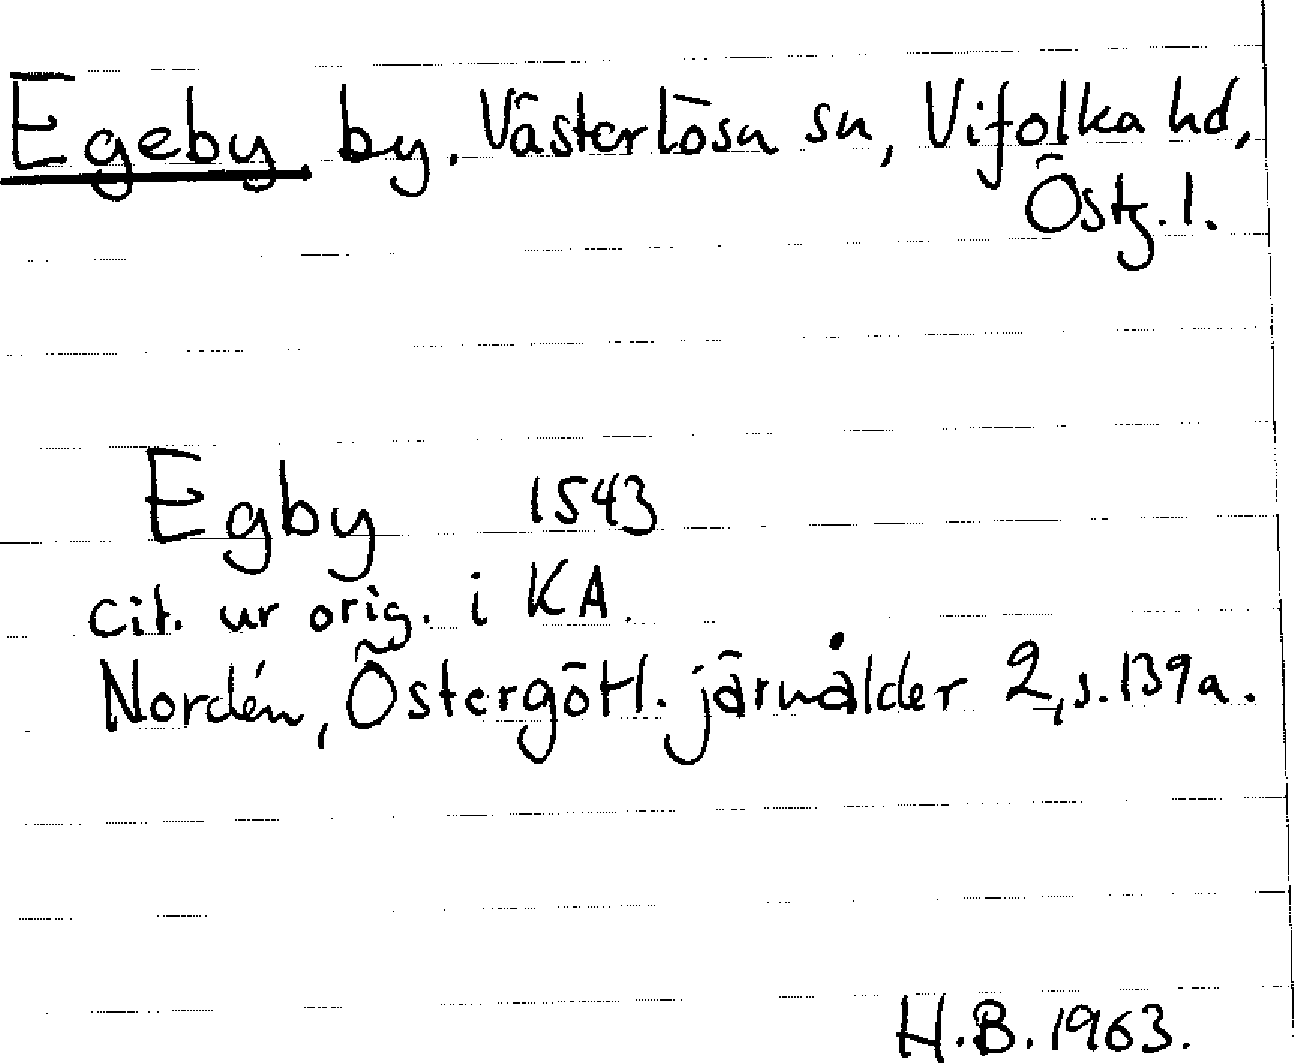 Egeby by. Västerlösa sn, Vifolka hd,
Östg. l.
Egby 1543
cit. ur orig. i KA.
Nordén, Östergötl. järnålder 2, s. 139a.
H.B. 1963.